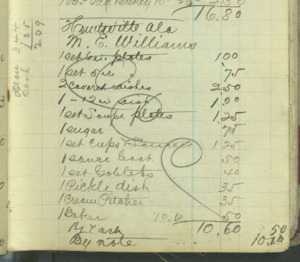 16.80
Huntsville Ala
M. E. Williams
1 set 6 in. plates 100
1 set 5 in 75
2 covered dishes 2,50
1 - 12 in dish 1,00
1 set Soup plates 1,25
1 sugar 75
1 set Cups & Saucers 1,25
1 sauce boat 50
1 set Goblets 40
1 Pickle dish 35
1 Cream Pitcher 35
1 Baker 50
10.60
By Cash 50
By note 10.10